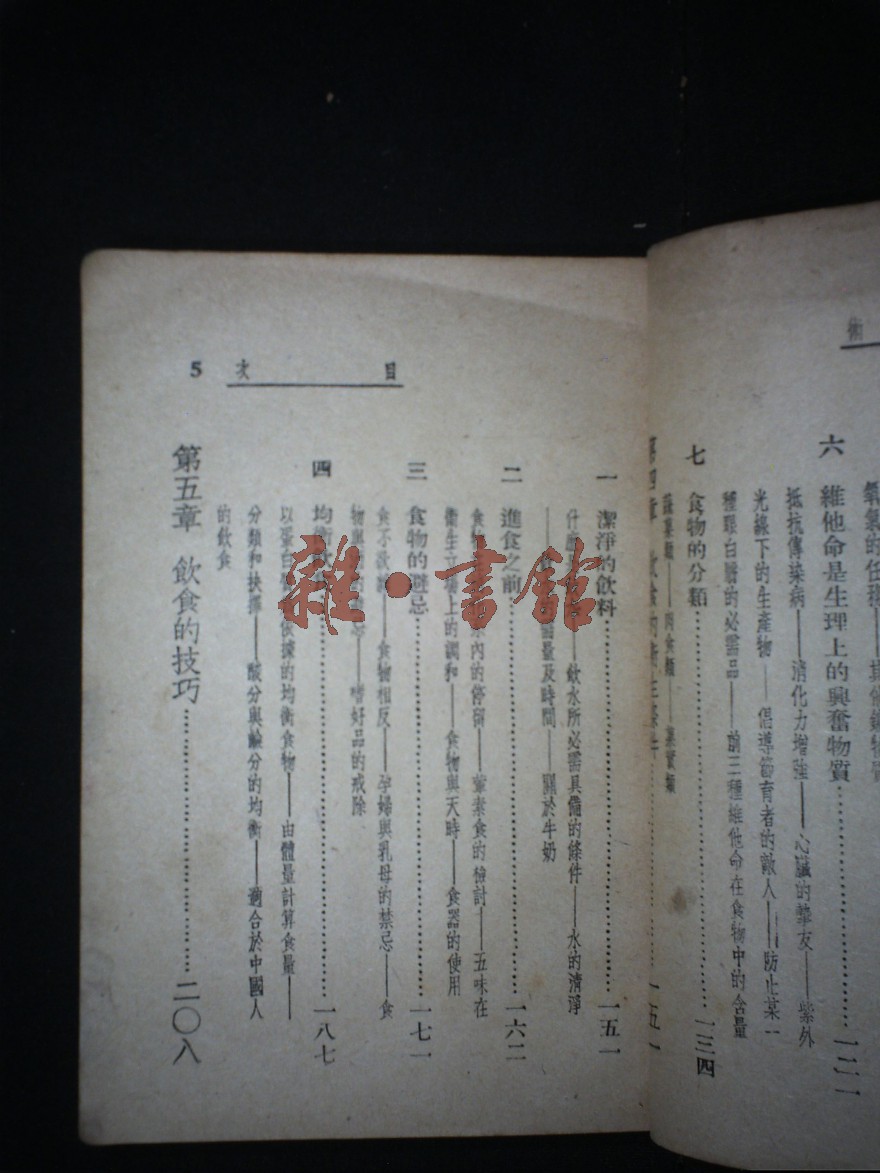 術
氧氣的任務——其他鑛物質
六 維他命是生理上的興奮物質……一二一
抵抗傳染病——消化力增強——心臟的摯友——紫外
光線下的生產物——倡導節育者的敵人——防止某一
種蛋白體的必需品——前三種維他命在食物中的含量
七 食物的分類……一三四
蔬菜類——肉食類——果實類
第四章 飲食的衛生條件……一五一
目 次 5
一 潔淨的飲料……一五一
什麼——飲水所必需具備的條件——水的清淨
——量及時間——關於牛奶
二 進食之前……一六二
食物內的停留——葷素食的檢討——五味在
衛生立場上的調和——食物與天時——食器的使用
三 食物的避忌……一七一
食不欲——食物相反——孕婦與乳母的禁忌——食
物與——嗜好品的戒除
四 均衡飲食……一八七
以蛋白依據的均衡食物——由體量計算食量——
分類和抉擇——酸分與鹼分的均衡——適合於中國人
的飲食
第五章 飲食的技巧……二〇八
雜·書館